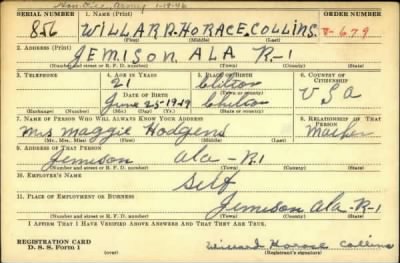 SERIAL NUMBER 1. NAME (Print)
856 WILLARD HORACE COLLINS
(First) (Middle) (Last)
2. ADDRESS (Print)
JEMISON ALA R-1
(Number and street or R. F. D. number) (Town) (County) (State)
3. TELEPHONE 4. AGE IN YEARS 5. PLACE OF BIRTH 6. COUNTRY OF CITIZENSHIP
21 Chilton
DATE OF BIRTH (Town or county)
June 25-1919 Chilton USA
(Exchange) (Number) (Mo.) (Day) (Yr.) (State or country)
7. NAME OF PERSON WHO WILL ALWAYS KNOW YOUR ADDRESS 8. RELATIONSHIP OF THAT PERSON
Mrs Maggie Hodgens Mother
(Mr., Mrs., Miss) (First) (Middle) (Last)
9. ADDRESS OF THAT PERSON
Jemison Ala-R.1
(Number and street or R. F. D. number) (Town) (County) (State)
10. EMPLOYER'S NAME
Self
11. PLACE OF EMPLOYMENT OR BUSINESS
Jemison Ala-R-1
(Number and street or R. F. D. number) (Town) (County) (State)
I AFFIRM THAT I HAVE VERIFIED ABOVE ANSWERS AND THAT THEY ARE TRUE.
REGISTRATION CARD
D. S. S. Form 1
Willard Horace Collins
(Registrant's signature)